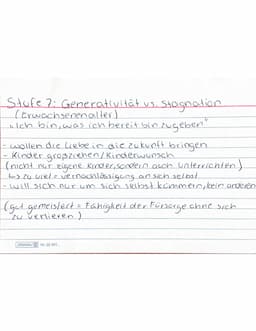 Stufe 7: Generativität vs. Stagnation
(Erwachsenenalter)
„Ich bin, was ich bereit bin zu geben"
- wollen die Liebe in die Zukunft bringen
- Kinder großziehen/Kinderwunsch
(nicht nur eigene Kinder, sondern auch Unterrichten)
↳ zu viel = vernachlässigung an sich selbst
- will sich nur um sich selbst kümmern, kein anderen
(gut gemeistert = Fähigkeit der Fürsorge ohne sich
zu verlieren)